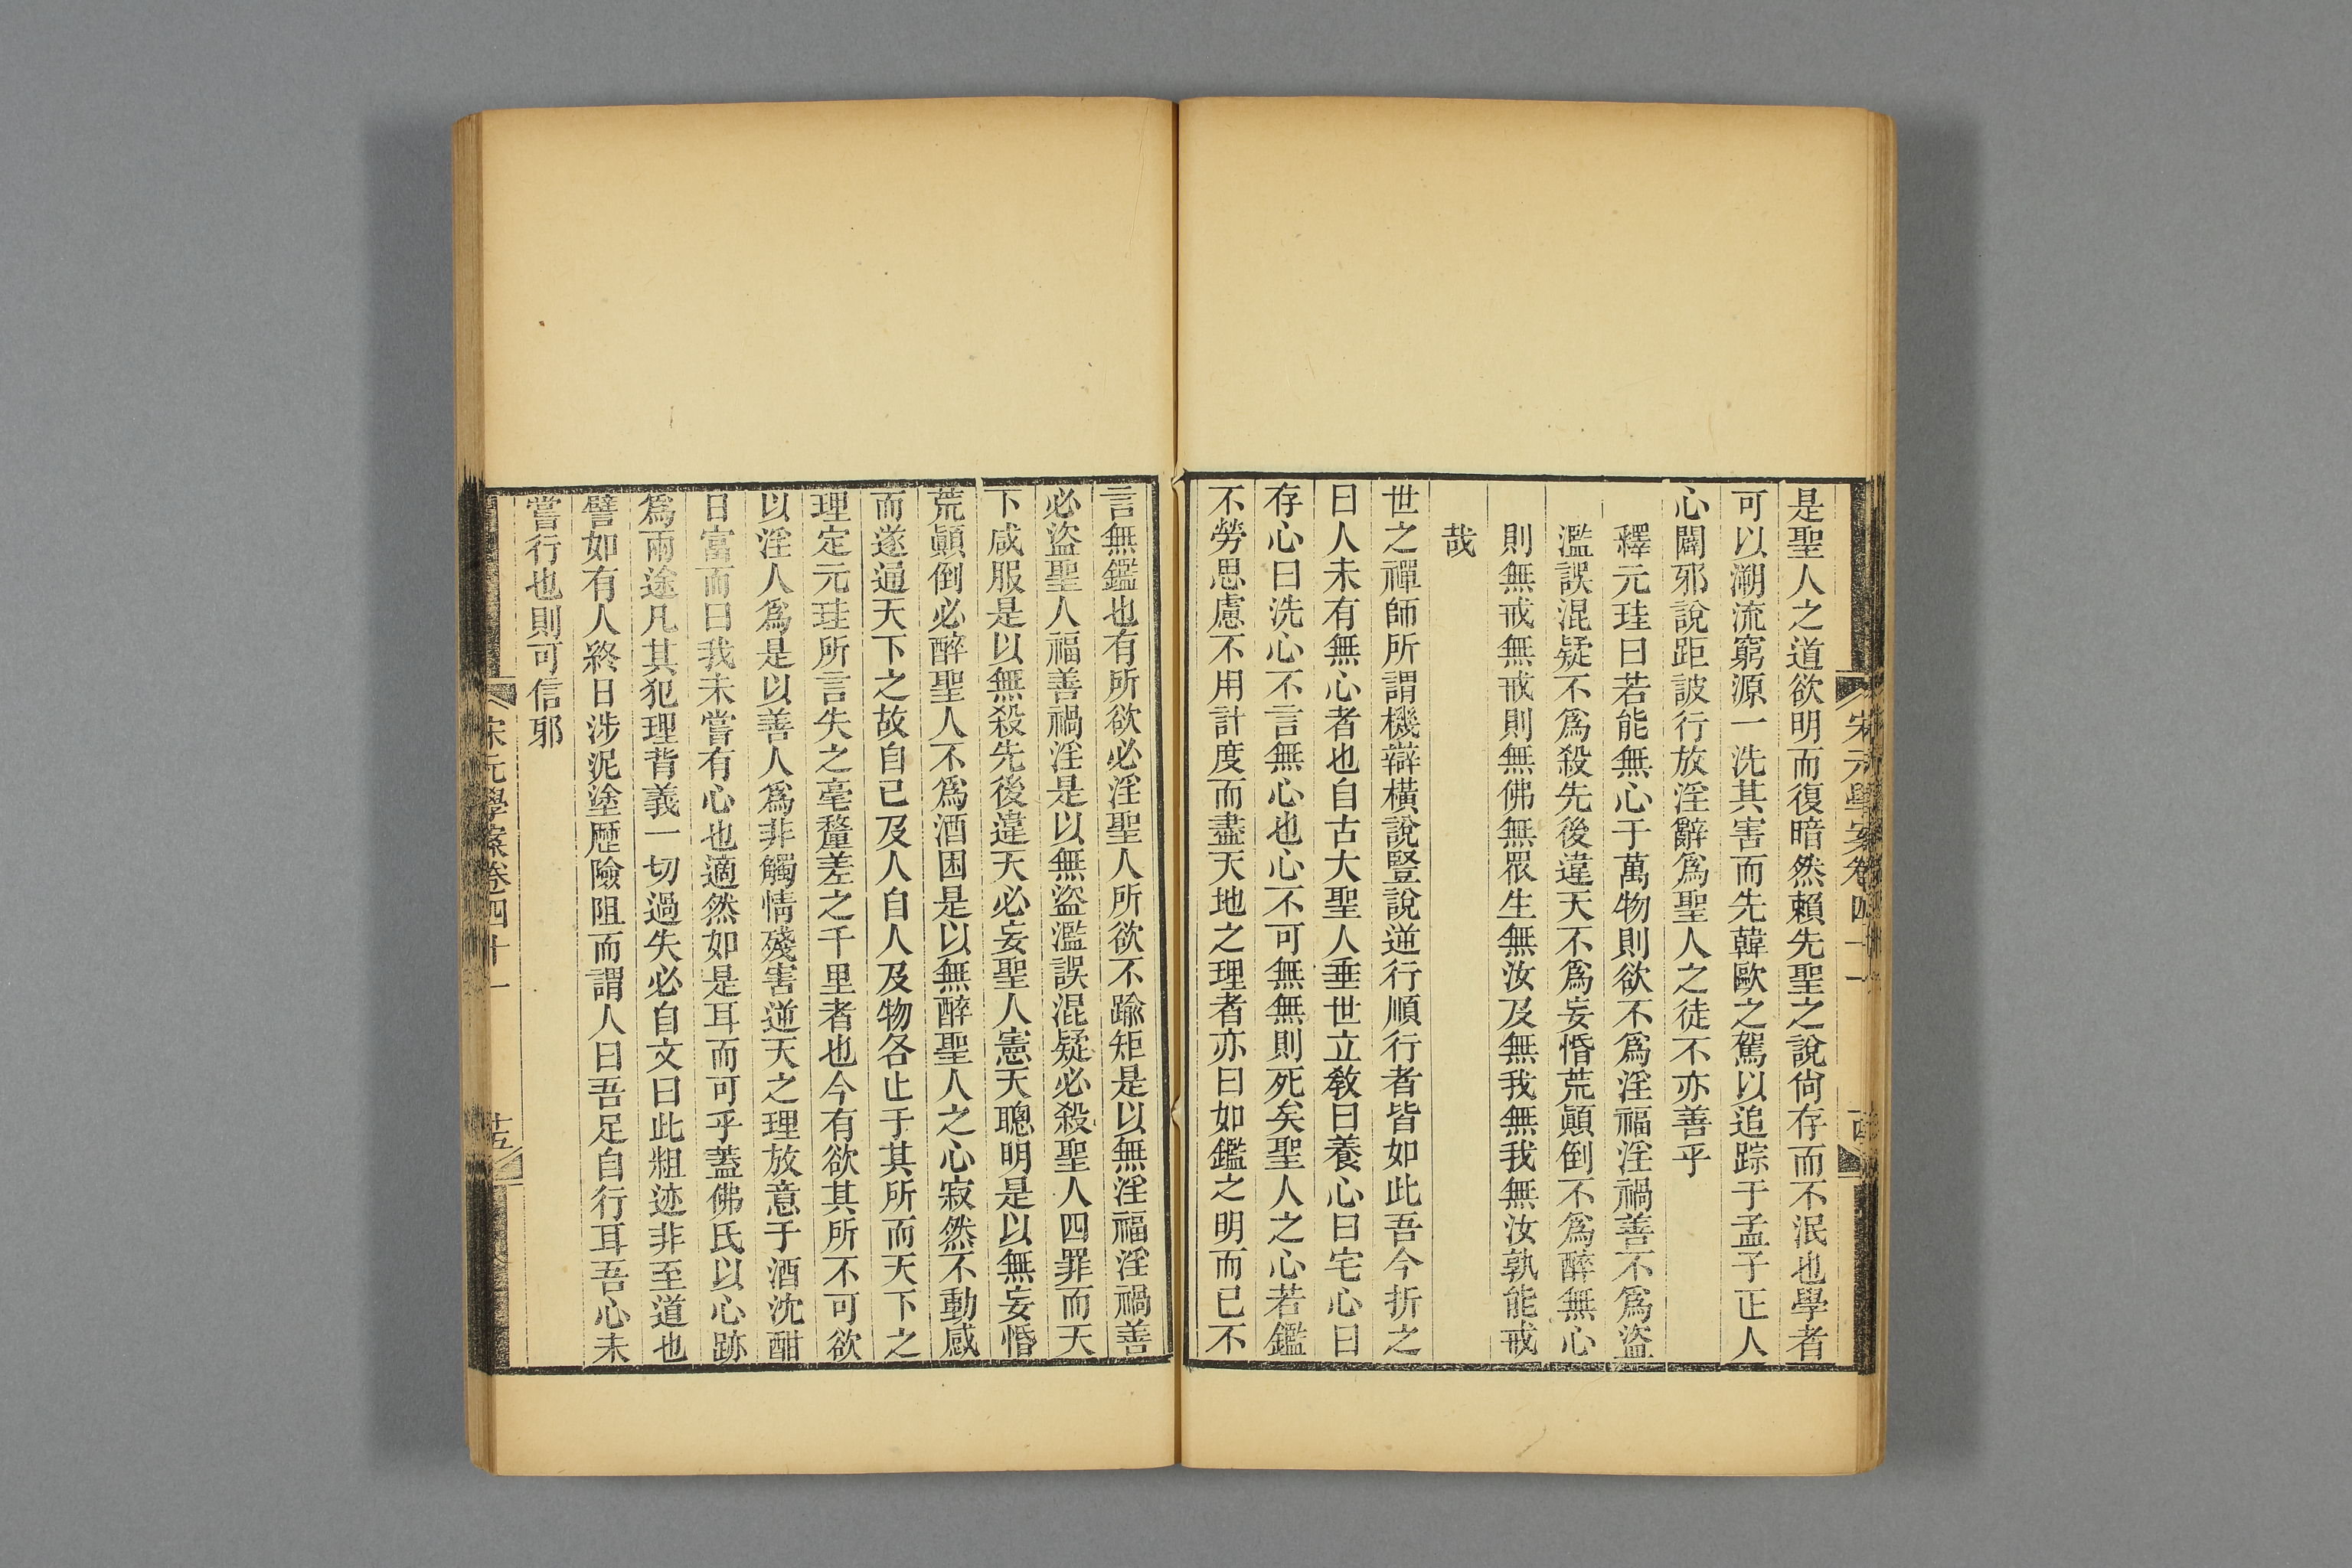 宋元學案卷四十一
是聖人之道欲明而復暗然賴先聖之說尙存而不泯也學者
可以溯流窮源一洗其害而先韓歐之駕以追踪于孟子正人
心闢邪說距詖行放淫辭爲聖人之徒不亦善乎
釋元珪曰若能無心于萬物則欲不爲淫福淫禍善不爲盜
濫誤混疑不爲殺先後違天不爲妄惛荒顚倒不爲醉無心
則無戒無戒則無佛無眾生無汝及無我無我無汝孰能戒
哉
世之禪師所謂機辯橫說豎說逆行順行者皆如此吾今折之
曰人未有無心者也自古大聖人垂世立敎曰養心曰宅心曰
存心曰洗心不言無心也心不可無無則死矣聖人之心若鑑
不勞思慮不用計度而盡天地之理者亦曰如鑑之明而已不
言無鑑也有所欲必淫聖人所欲不踰矩是以無淫福淫禍善
必盜聖人福善禍淫是以無盜濫誤混疑必殺聖人四罪而天
下咸服是以無殺先後違天必妄聖人憲天聰明是以無妄惛
荒顚倒必醉聖人不爲酒困是以無醉聖人之心寂然不動感
而遂通天下之故自己及人自人及物各止于其所而天下之
理定元珪所言失之毫釐差之千里者也今有欲其所不可欲
以淫人爲是以善人爲非觸情殘害逆天之理放意于酒沈酣
日富而曰我未嘗有心也適然如是耳而可乎蓋佛氏以心跡
爲兩途凡其犯理背義一切過失必自文曰此粗迹非至道也
譬如有人終日涉泥塗歷險阻而謂人曰吾足自行耳吾心未
嘗行也則可信邪
宋元學案卷四十一
十五